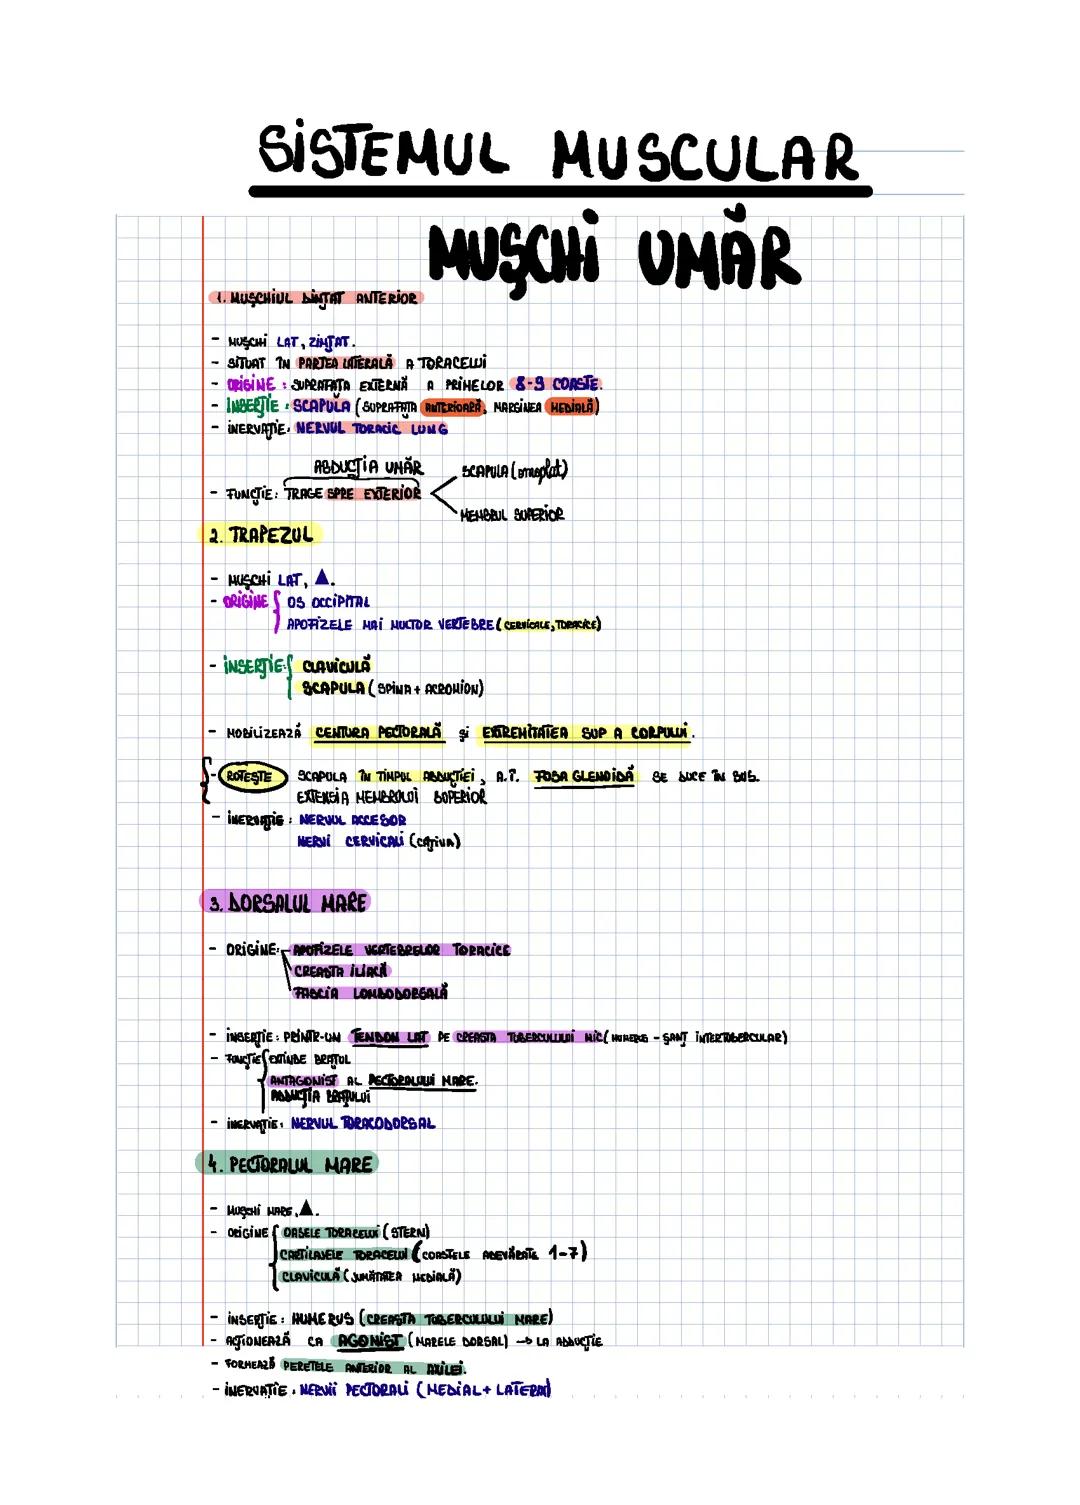 SISTEMUL MUSCULAR
MUȘCHI UMĂR
1. MUȘCHIUL DINȚAT ANTERIOR
- MUȘCHI LAT, ZIMȚAT.
- SITUAT ÎN PARTEA LATERALĂ A TORACELUI
- ORIGINE: SUPRAFAȚA EXTERNĂ A PRIMELOR 8-9 COASTE.
- INSERȚIE: SCAPULA (SUPRAFAȚA ANTERIOARĂ, MARGINEA MEDIALĂ)
- INERVAȚIE: NERVUL TORACIC LUNG
ABDUCȚIA UMĂR
SCAPULA (omoplat)
- FUNCȚIE: TRAGE SPRE EXTERIOR
MEMBRUL SUPERIOR
2. TRAPEZUL
- MUȘCHI LAT, ▲.
- ORIGINE { OS OCCIPITAL
APOFIZELE MAI MULTOR VERTEBRE (CERVICALE, TORACICE)
- INSERȚIE: { CLAVICULĂ
SCAPULA (SPINA + ACROMION)
- MOBILIZEAZĂ CENTURA PECTORALĂ și EXTREMITATEA SUP A CORPULUI.
- ROTEȘTE SCAPULA ÎN TIMPUL ABDUCȚIEI, A.Î. FOSA GLENOIDĂ SE DUCE ÎN SUS.
EXTENSIA MEMBRULUI SUPERIOR
- INERVAȚIE: NERVUL ACCESOR
NERVI CERVICALI (CÂȚIVA)
3. DORSALUL MARE
- ORIGINE: APOFIZELE VERTEBRELOR TORACICE
CREASTA ILIACĂ
FASCIA LOMBODORSALĂ
- INSERȚIE: PRINTR-UN TENDON LAT PE CREASTA TUBERCULULUI MIC (HUMERUS - ȘANȚ INTERTUBERCULAR)
- FUNCȚIE { EXTINDE BRAȚUL
ANTAGONIST AL PECTORALULUI MARE.
ADDUCȚIA BRAȚULUI
- INERVAȚIE: NERVUL TORACODORSAL
4. PECTORALUL MARE
- MUȘCHI MARE, ▲.
- ORIGINE { OASELE TORACELUI (STERN)
CARTILAJELE TORACELUI (COASTELE ADEVĂRATE 1-7)
CLAVICULĂ (JUMĂTATEA MEDIALĂ)
- INSERȚIE: HUMERUS (CREASTA TUBERCULULUI MARE)
- ACȚIONEAZĂ CA AGONIST (MARELE DORSAL) → LA ADDUCȚIE
- FORMEAZĂ PERETELE ANTERIOR AL AXILEI.
- INERVAȚIE: NERVII PECTORALI (MEDIAL + LATERAL)